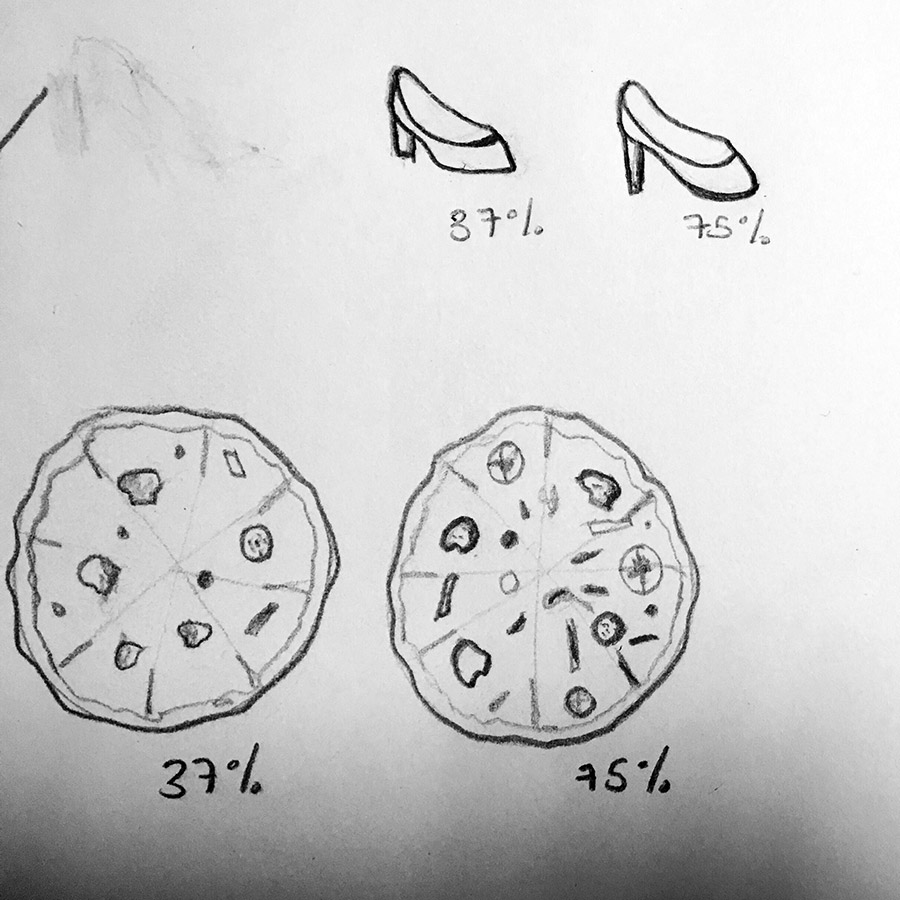 37%
75%
37%
75%